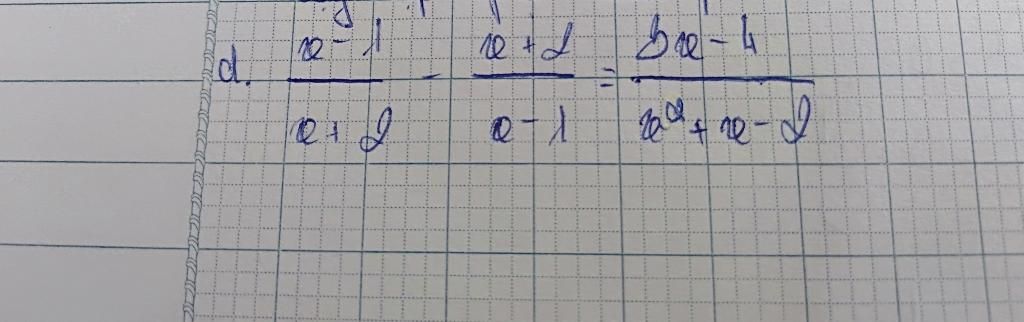 d. \frac{x-1}{x+2} - \frac{x+2}{x-1} = \frac{5x-4}{x^2+x-2}